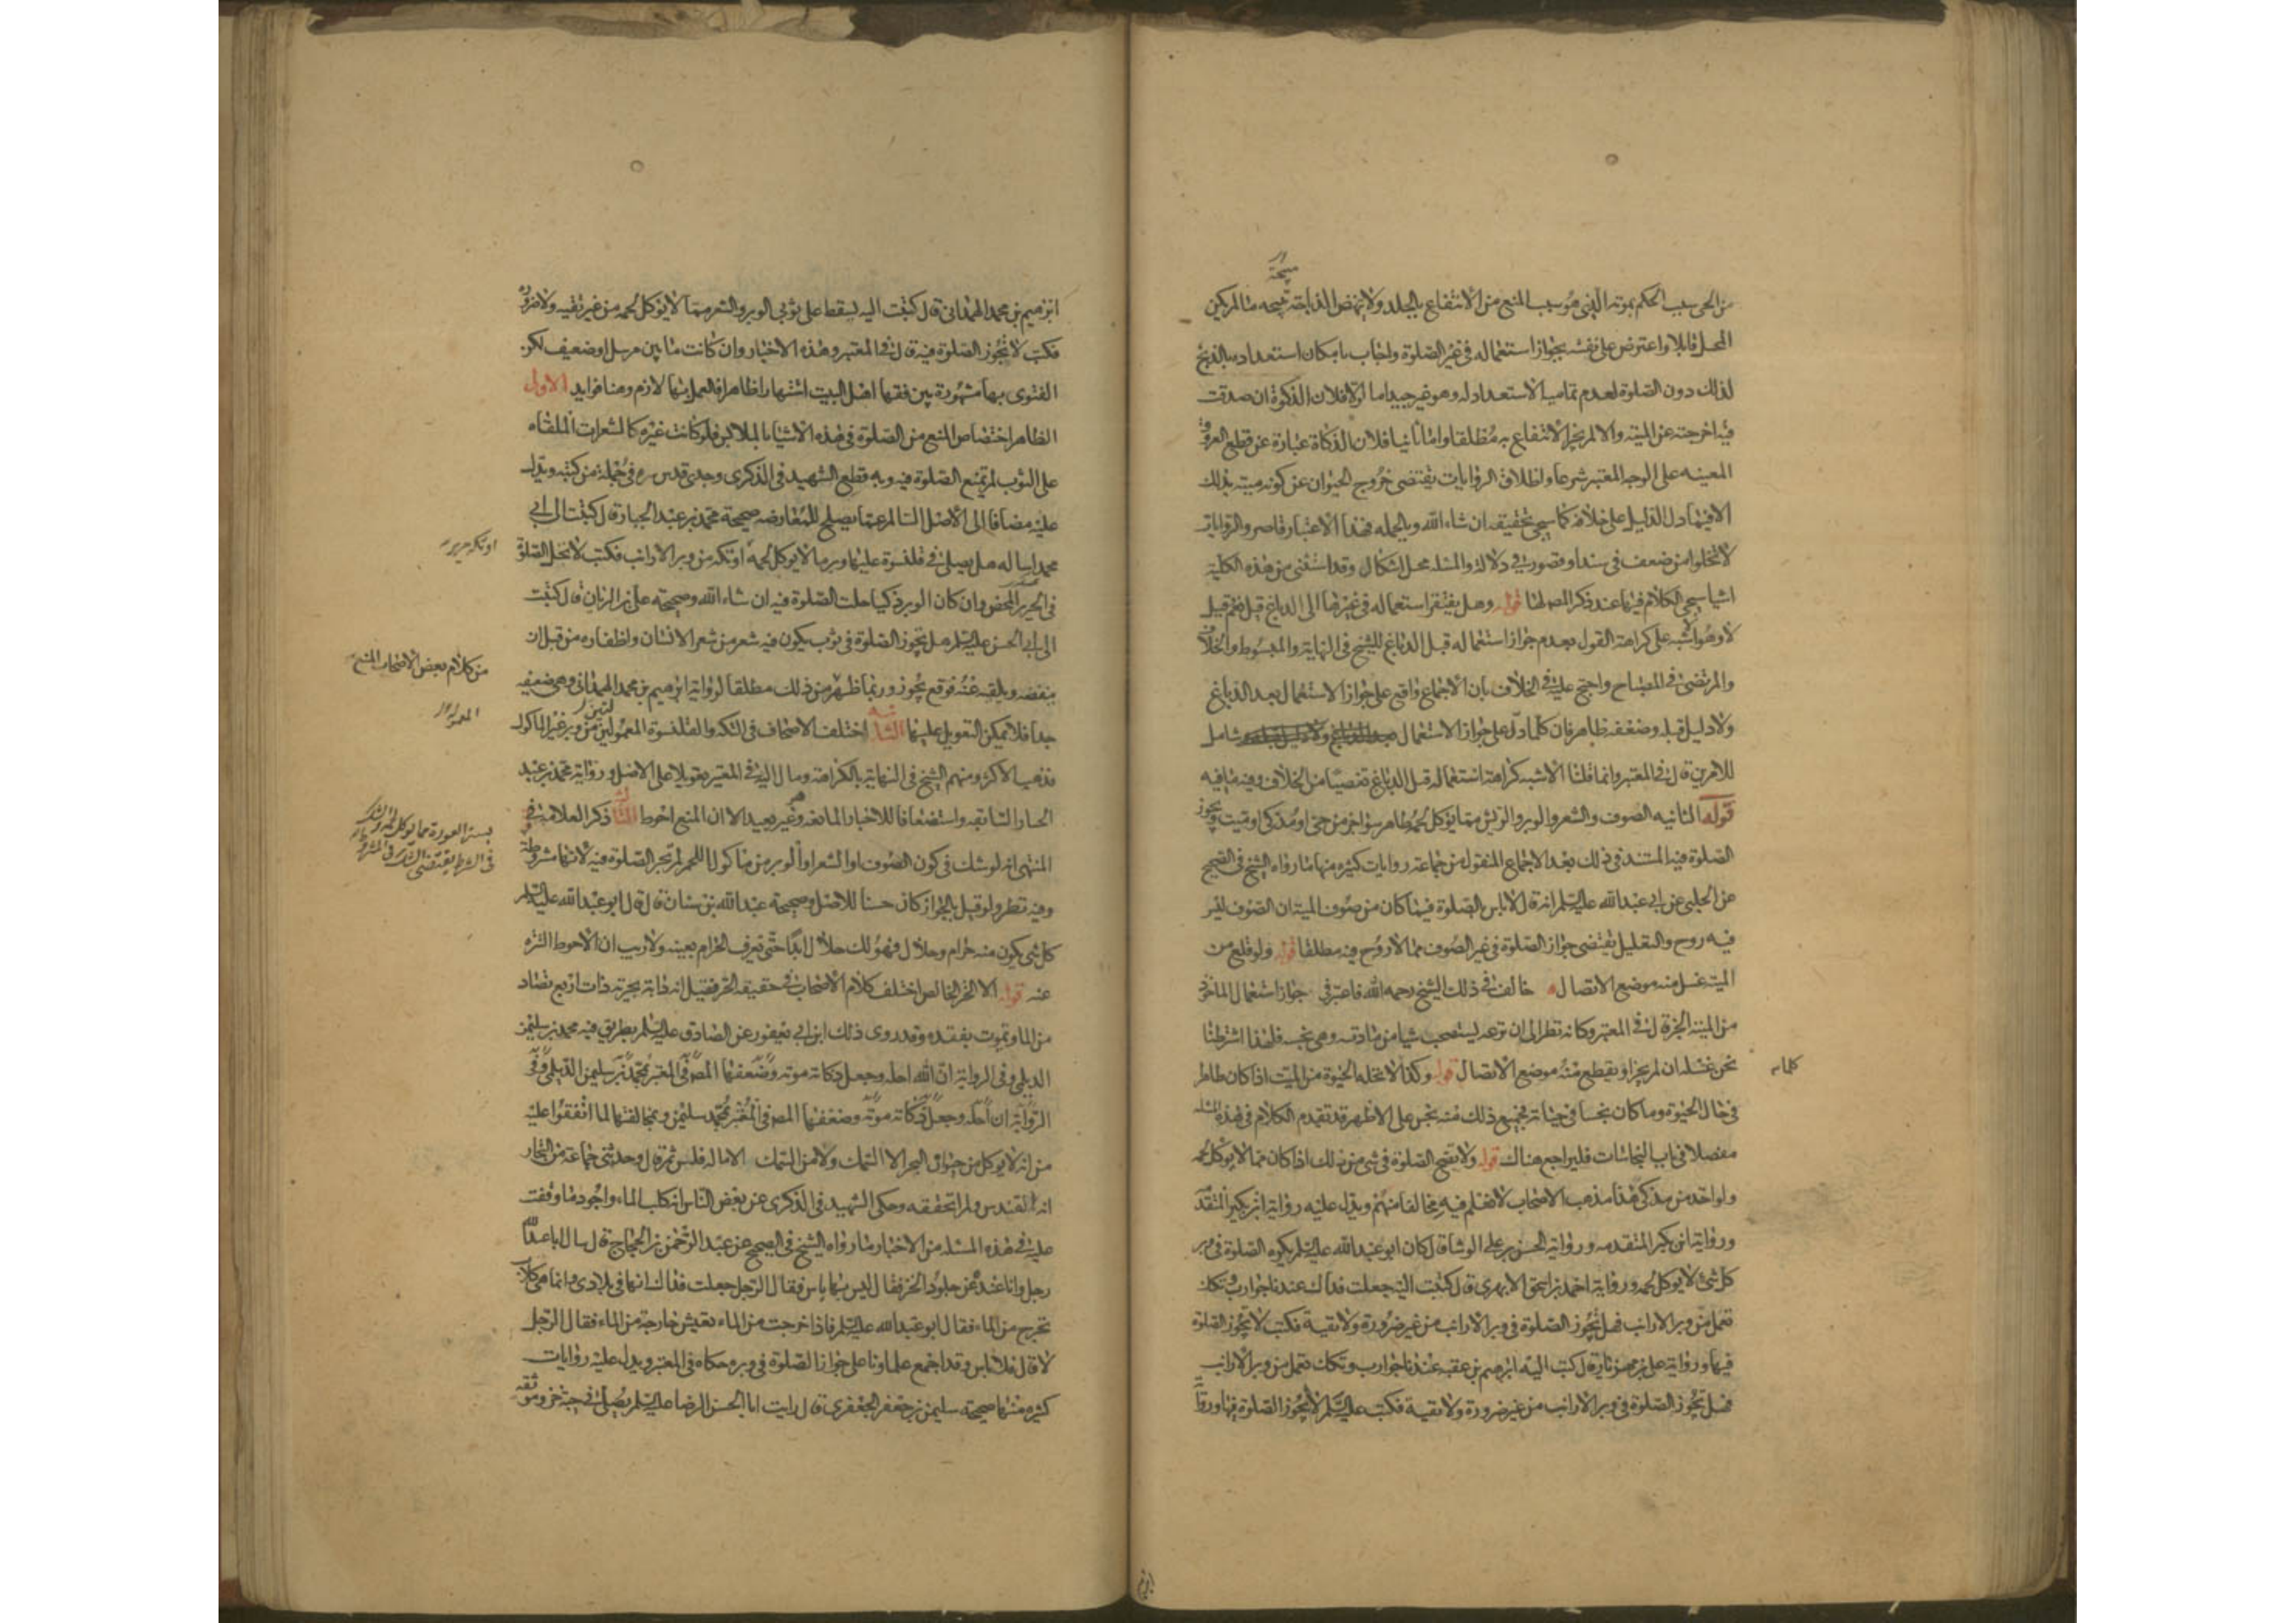 مبيحة
من الحي سبب الحكم بموته الذي هو سبب المنع من الانتفاع بالجلد ولا ينهض الذباحة مبيحه ما لم يكن
المحل قابلا واعترض على نفسه بجواز استعماله في غير الصلوة واجاب بامكان استعداده بالذبح
لذلك دون الصلوة لعدم تمامية الاستعداد له وهو غير جيد اما اولا فلان الذكوة ان صدقت
فيه اخرجته عن الميته والا لم يجز الانتفاع به مطلقا واما ثانيا فلان الذكاة عبارة عن قطع العروق
المعينه على الوجه المعتبر شرعا واطلاق الروايات يقتضي خروج الحيوان عن كونه ميته بذلك
الا فيما دل الدليل على خلافه كما سيجي تحقيقه ان شاء الله وبالجمله فهذا الاعتبار قاصر والروايات
لا تخلوا من ضعف في سند او قصور في دلالة والمسئله محل اشكال وقد استثنى من هذه الكلية
اشيا سيجي الكلام فيها عند ذكر المص لها قوله وهل يفتقر استعماله في غيرها الى الدباغ قيل نعم وقيل
لا وهو اشبه على كراهة القول بعدم جواز استعماله قبل الدباغ للشيخ في النهاية والمبسوط والخلاف
والمرتضى في المصباح واحتج عليه في الخلاف بان الاجماع واقع على جواز الاستعمال بعد الدباغ
ولا دليل قبله وضعفه ظاهر فان كلما دل على جواز الاستعمال شامل
للامرين قال في المعتبر وانما قلنا الاشبه كراهة استعماله قبل الدباغ تفصيا من الخلاف وفيه ما فيه
قوله الثانيه الصوف والشعر والوبر والريش مما يؤكل لحمه طاهر سواء جز من حي او مذكى او ميت ويجوز
الصلوة فيه المستند في ذلك بعد الاجماع المنقول من جماعة روايات كثيره منها ما رواه الشيخ في الصحيح
عن الحلبي عن ابي عبد الله عليه السلم انه قال لا باس بالصلوة فيما كان من صوف الميتة ان الصوف ليس
فيه روح والتعليل يقتضي جواز الصلوة في غير الصوف مما لا روح فيه مطلقا قوله ولو قلع من
الميت غسل منه موضع الاتصال خالف في ذلك الشيخ رحمه الله فاعتبر في جواز استعمال الماخوذ
من الميتة الجز قال في المعتبر وكانه نظر الى ان نزعه يستصحب شيا من مادته وهي نجسه فلهذا اشترطنا
نحن غسله ان لم يجز او يقطع منه موضع الاتصال قوله وكذا كلما لا تحله الحيوة من الميت اذا كان طاهرا
في حال الحيوة وما كان نجسا في حياته فجميع ذلك منه نجس على الاظهر قد تقدم الكلام في هذه المسئله
مفصلا في باب النجاسات فليراجع هناك قوله ولا يصح الصلوة في شي من ذلك اذا كان مما لا يؤكل لحمه
ولو اخذ من مذكى هذا مذهب الاصحاب لا نعلم فيه مخالفا منهم ويدل عليه رواية ابن بكير المتقدمة
ورواية ابن بكير المتقدمه ورواية الحسن بن علي الوشا قال كان ابو عبد الله عليه السلم يكره الصلوة في وبر
كل شي لا يوكل لحمه ورواية احمد بن اسحق الابهري قال كتبت اليه جعلت فداك عندنا جوارب وتكك
تعمل من وبر الارانب فهل تجوز الصلوة في وبر الارانب من غير ضرورة ولا تقية فكتب لا تجوز الصلوة
فيها ورواية علي بن مهزيار قال كتب اليه ابرهيم بن عقبه عندنا جوارب وتكك تعمل من وبر الارانب
فهل تجوز الصلوة في وبر الارانب من غير ضرورة ولا تقية فكتب عليه السلم لا يجوز الصلوة فيها ورواية
كلما
ابرهيم بن محمد الهمداني قال كتبت اليه يسقط على ثوبي الوبر والشعر مما لا يؤكل لحمه من غير تقيه ولا ضرورة
فكتب لا تجوز الصلوة فيه قال في المعتبر وهذه الاخبار وان كانت ما بين مرسل او ضعيف لكن
الفتوى بها مشهورة بين فقها اهل البيت اشتهارا ظاهرا فالعمل بها لازم وهنا فوايد الاول
الظاهر اختصاص المنع من الصلوة في هذه الاشيا بالملابس فلو كانت غيره كالشعرات الملقاه
على الثوب لم تمنع الصلوة فيه وبه قطع الشهيد في الذكرى وجدي قدس سره في جملة من كتبه ويدل
عليه مضافا الى الاصل السالم عما يصلح للمعارضه صحيحة محمد بن عبد الجبار قال كتبت الى ابي
محمد اساله هل يصلى في قلنسوة عليها وبر ما لا يوكل لحمه او تكه من وبر الارانب فكتب لا تحل الصلوة
في الحرير المحض وان كان الوبر ذكيا حلت الصلوة فيه ان شاء الله وصحيحة علي بن الريان قال كتبت
الى ابي الحسن عليه السلم هل تجوز الصلوة في ثوب يكون فيه شعر من شعر الانسان واظفاره من قبل ان
ينفضه ويلقيه عنه فوقع يجوز وربما ظهر من ذلك مطلقا لرواية ابرهيم بن محمد الهمداني وهي ضعيفه
جدا فلا يمكن التعويل عليها الثانيه اختلف الاصحاب في التكه والقلنسوة المعمولتين من وبر غير الماكول
فذهب الاكثر ومنهم الشيخ في النهاية بالكراهة ومال اليه في المعتبر تعويلا على الاصل ورواية محمد بن عبد
الجبار السابقه واستضعافا للاخبار المانعه وهو غير بعيد الا ان المنع احوط الثالث ذكر العلامة في
المنتهى انه لو شك في كون الصوف او الشعر او الوبر من ماكول اللحم لم تجز الصلوة فيه لانها مشروطة
وفيه نظر ولو قيل بالجواز كان حسنا للاصل وصحيحة عبد الله بن سنان قال قال ابو عبد الله عليه السلم
كل شي يكون منه حرام وحلال فهو لك حلال ابدا حتى تعرف الحرام بعينه ولا ريب ان الاحوط التنزه
عنه قوله الا الخز الخالص اختلف كلام الاصحاب في حقيقه الخز فقيل انه دابة بحرية ذات اربع تصاد
من الماء وتموت بفقده وقد روى ذلك ابن ابي يعفور عن الصادق عليه السلم بطريق فيه محمد بن سليمن
الديلمي وفي الرواية ان الله احله وجعل ذكاته موته وضعفها المص في المعتبر بمحمد بن سليمن الديلمي وفي
الرواية ان احله وجعل ذكاته موته وضعفها المص في المعتبر بمحمد سليمن وبمخالفتها لما اتفقوا عليه
من انه لا يوكل من حيوان البحر الا السمك ولا من السمك الا ما له فلس ثم قال وحدثني جماعة من التجار
انه القندس ولم اتحققه وحكى الشهيد في الذكرى عن بعض الناس انه كلب الماء واجود ما وقفت
عليه في هذه المسئله من الاخبار ما رواه الشيخ في الصحيح عن عبد الرحمن بن الحجاج قال سال ابا عبد الله
رجل وانا عنده عن جلود الخز فقال ليس بها باس فقال الرجل جعلت فداك انها في بلادي وانما هي كلاب
تخرج من الماء فقال ابو عبد الله عليه السلم فاذا خرجت من الماء تعيش خارجة من الماء فقال الرجل
لا قال فلا باس وقد اجمع علماونا على جواز الصلوة في وبره حكاه في المعتبر ويدل عليه روايات
كثيره منها صحيحة سليمن بن جعفر الجعفري قال رايت ابا الحسن الرضا عليه السلم يصلي في جبة خز وموثقه
او تكه حرير
من كلام بعض الاصحاب المنع
بستر العورة مما يؤكل لحمه والشك
في الشرط يقتضي الشك في المشروط